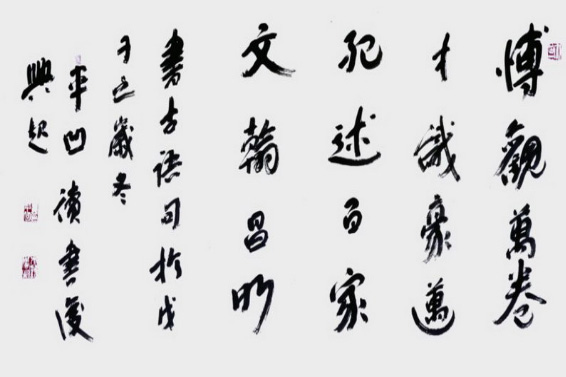 博觀萬卷
才識豪邁
紀述百家
文翰昌明
書古語句於戊
子之歲冬
平凹讀書後
興起